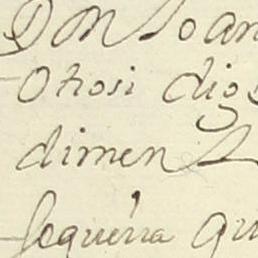 Don Joan
Otrosi dig
dimen
sequeria qu